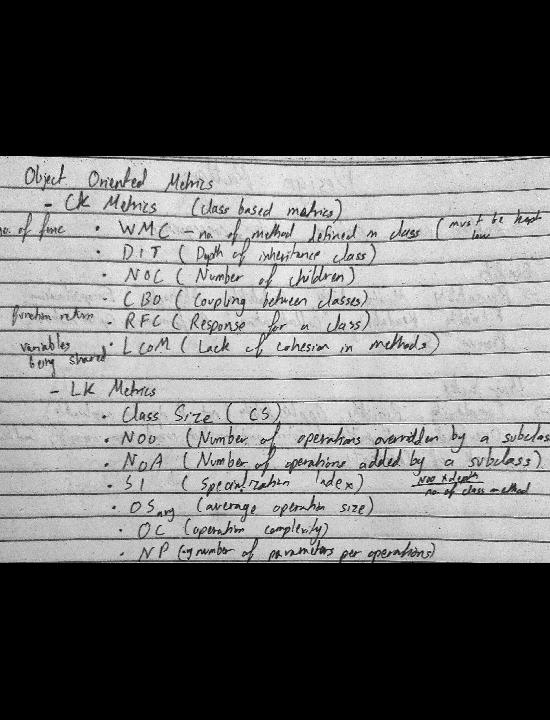 Object Oriented Metrics
- CK Metrics (class based metrics)
no. of func • WMC - no. of method defined in class (must be kept low
• DIT (Depth of inheritance class)
• NOC (Number of children)
• CBO (Coupling between classes)
function return • RFC (Response for a class)
variables being shared • LCOM (Lack of cohesion in methods)
- LK Metrics
• Class Size (CS)
• NOO (Number of operations overridden by a subclas
• NOA (Number of operations added by a subclass)
• SI (Specialization Index) NOO x depth / no. of class method
• OS avg (average operation size)
• OC (operation complexity)
• NP (avg number of parameters per operations)